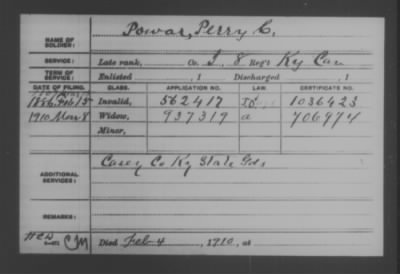 Powar, Perry C.
NAME OF SOLDIER:
SERVICE: Late rank, Co. I, 8 Reg't Ky Cav
TERM OF SERVICE: Enlisted , 1 Discharged , 1
DATE OF FILING. CLASS. APPLICATION NO. LAW. CERTIFICATE NO.
1886 Feb 15 Invalid, 562417 1036423
1910 Mar 8 Widow, 937319 a 706974
Minor,
ADDITIONAL SERVICES: Casey Co Ky State Gds
REMARKS:
Died Feb 4 , 1910, at